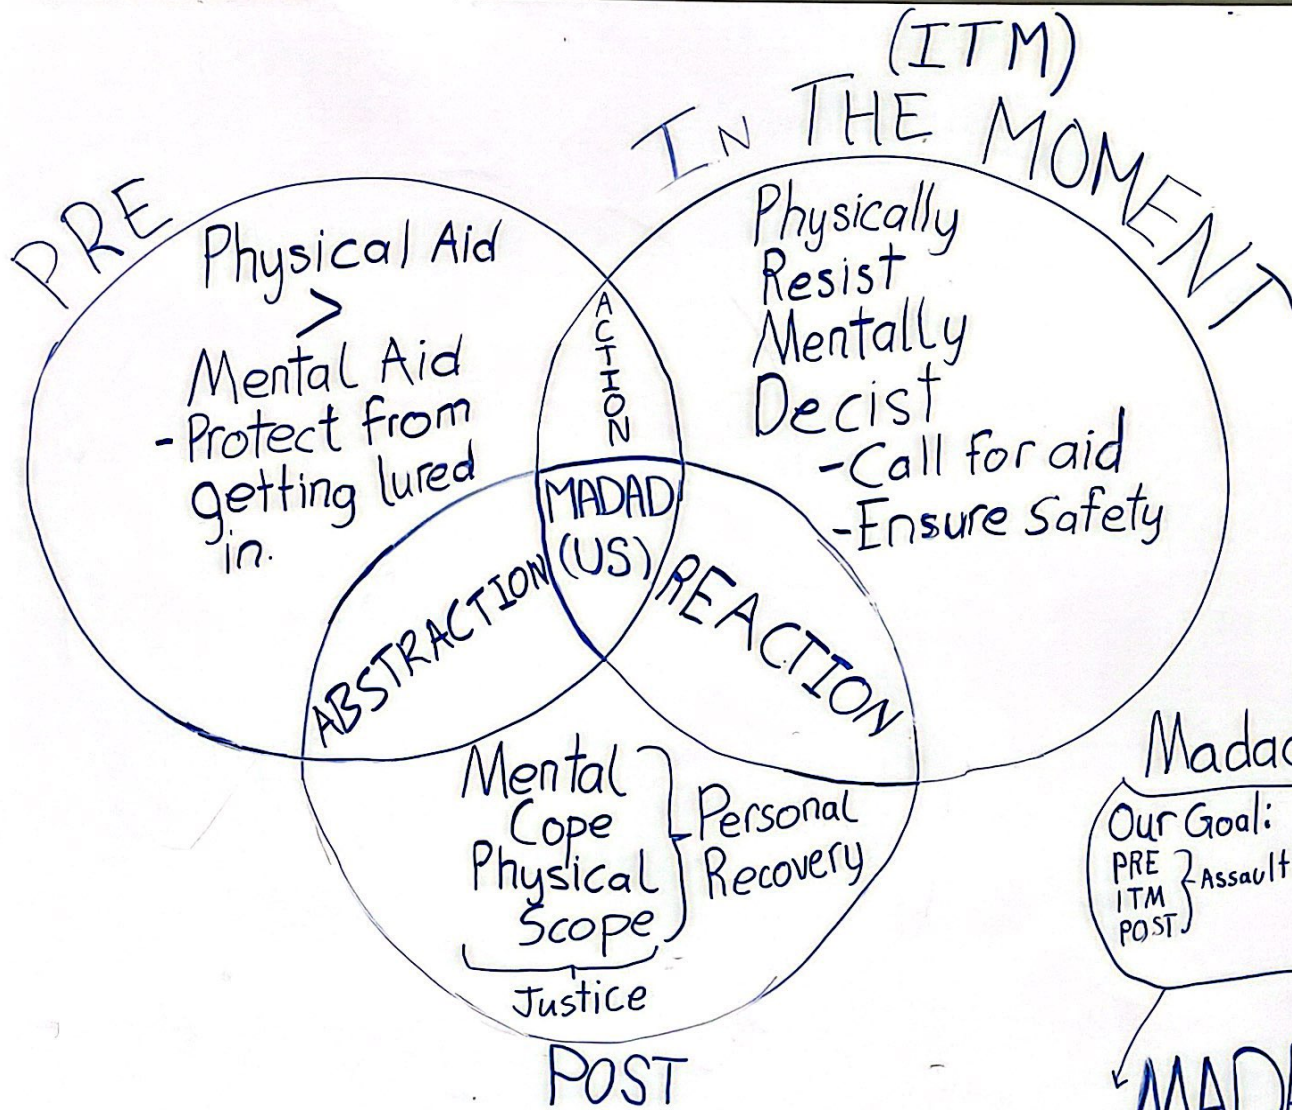 (ITM)
IN THE MOMENT
PRE
Physical Aid
>
Mental Aid
- Protect from
getting lured
in.
Physically
Resist
Mentally
Decist
- Call for aid
- Ensure Safety
ACTION
MADAD
(US)
ABSTRACTION
REACTION
Mental
Cope
Physical
Scope
Personal
Recovery
Justice
POST
Our Goal:
PRE
ITM
POST
Assault